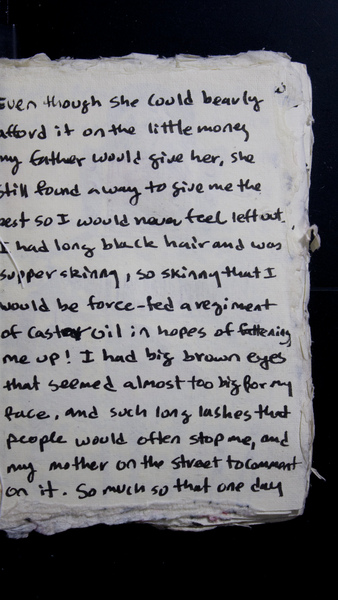 Even though she could bearly
afford it on the little money
my father would give her, she
still found a way to give me the
best so I would never feel left out.
I had long black hair and was
supper skinny, so skinny that I
would be force-fed a regiment
of castor oil in hopes of fattening
me up! I had big brown eyes
that seemed almost too big for my
face, and such long lashes that
people would often stop me, and
my mother on the street to comment
on it. So much so that one day